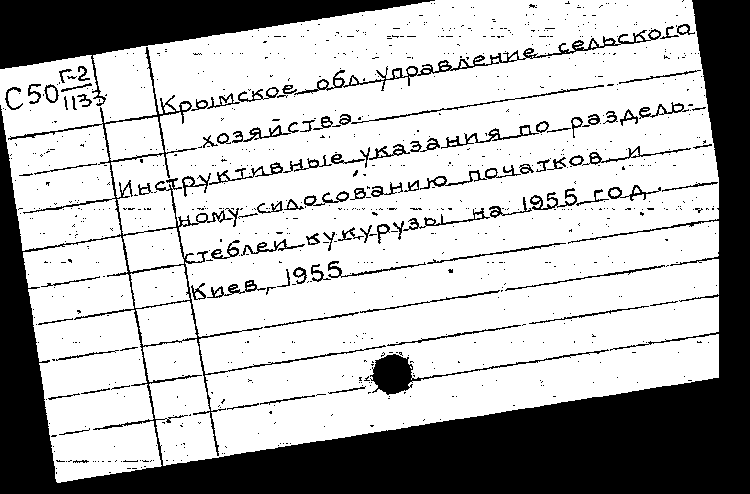 С50 Г-2/1133
Крымское обл. управление сельского
хозяйства.
Инструктивные указания по раздель-
ному силосованию початков и
стеблей кукурузы на 1955 год.
Киев, 1955